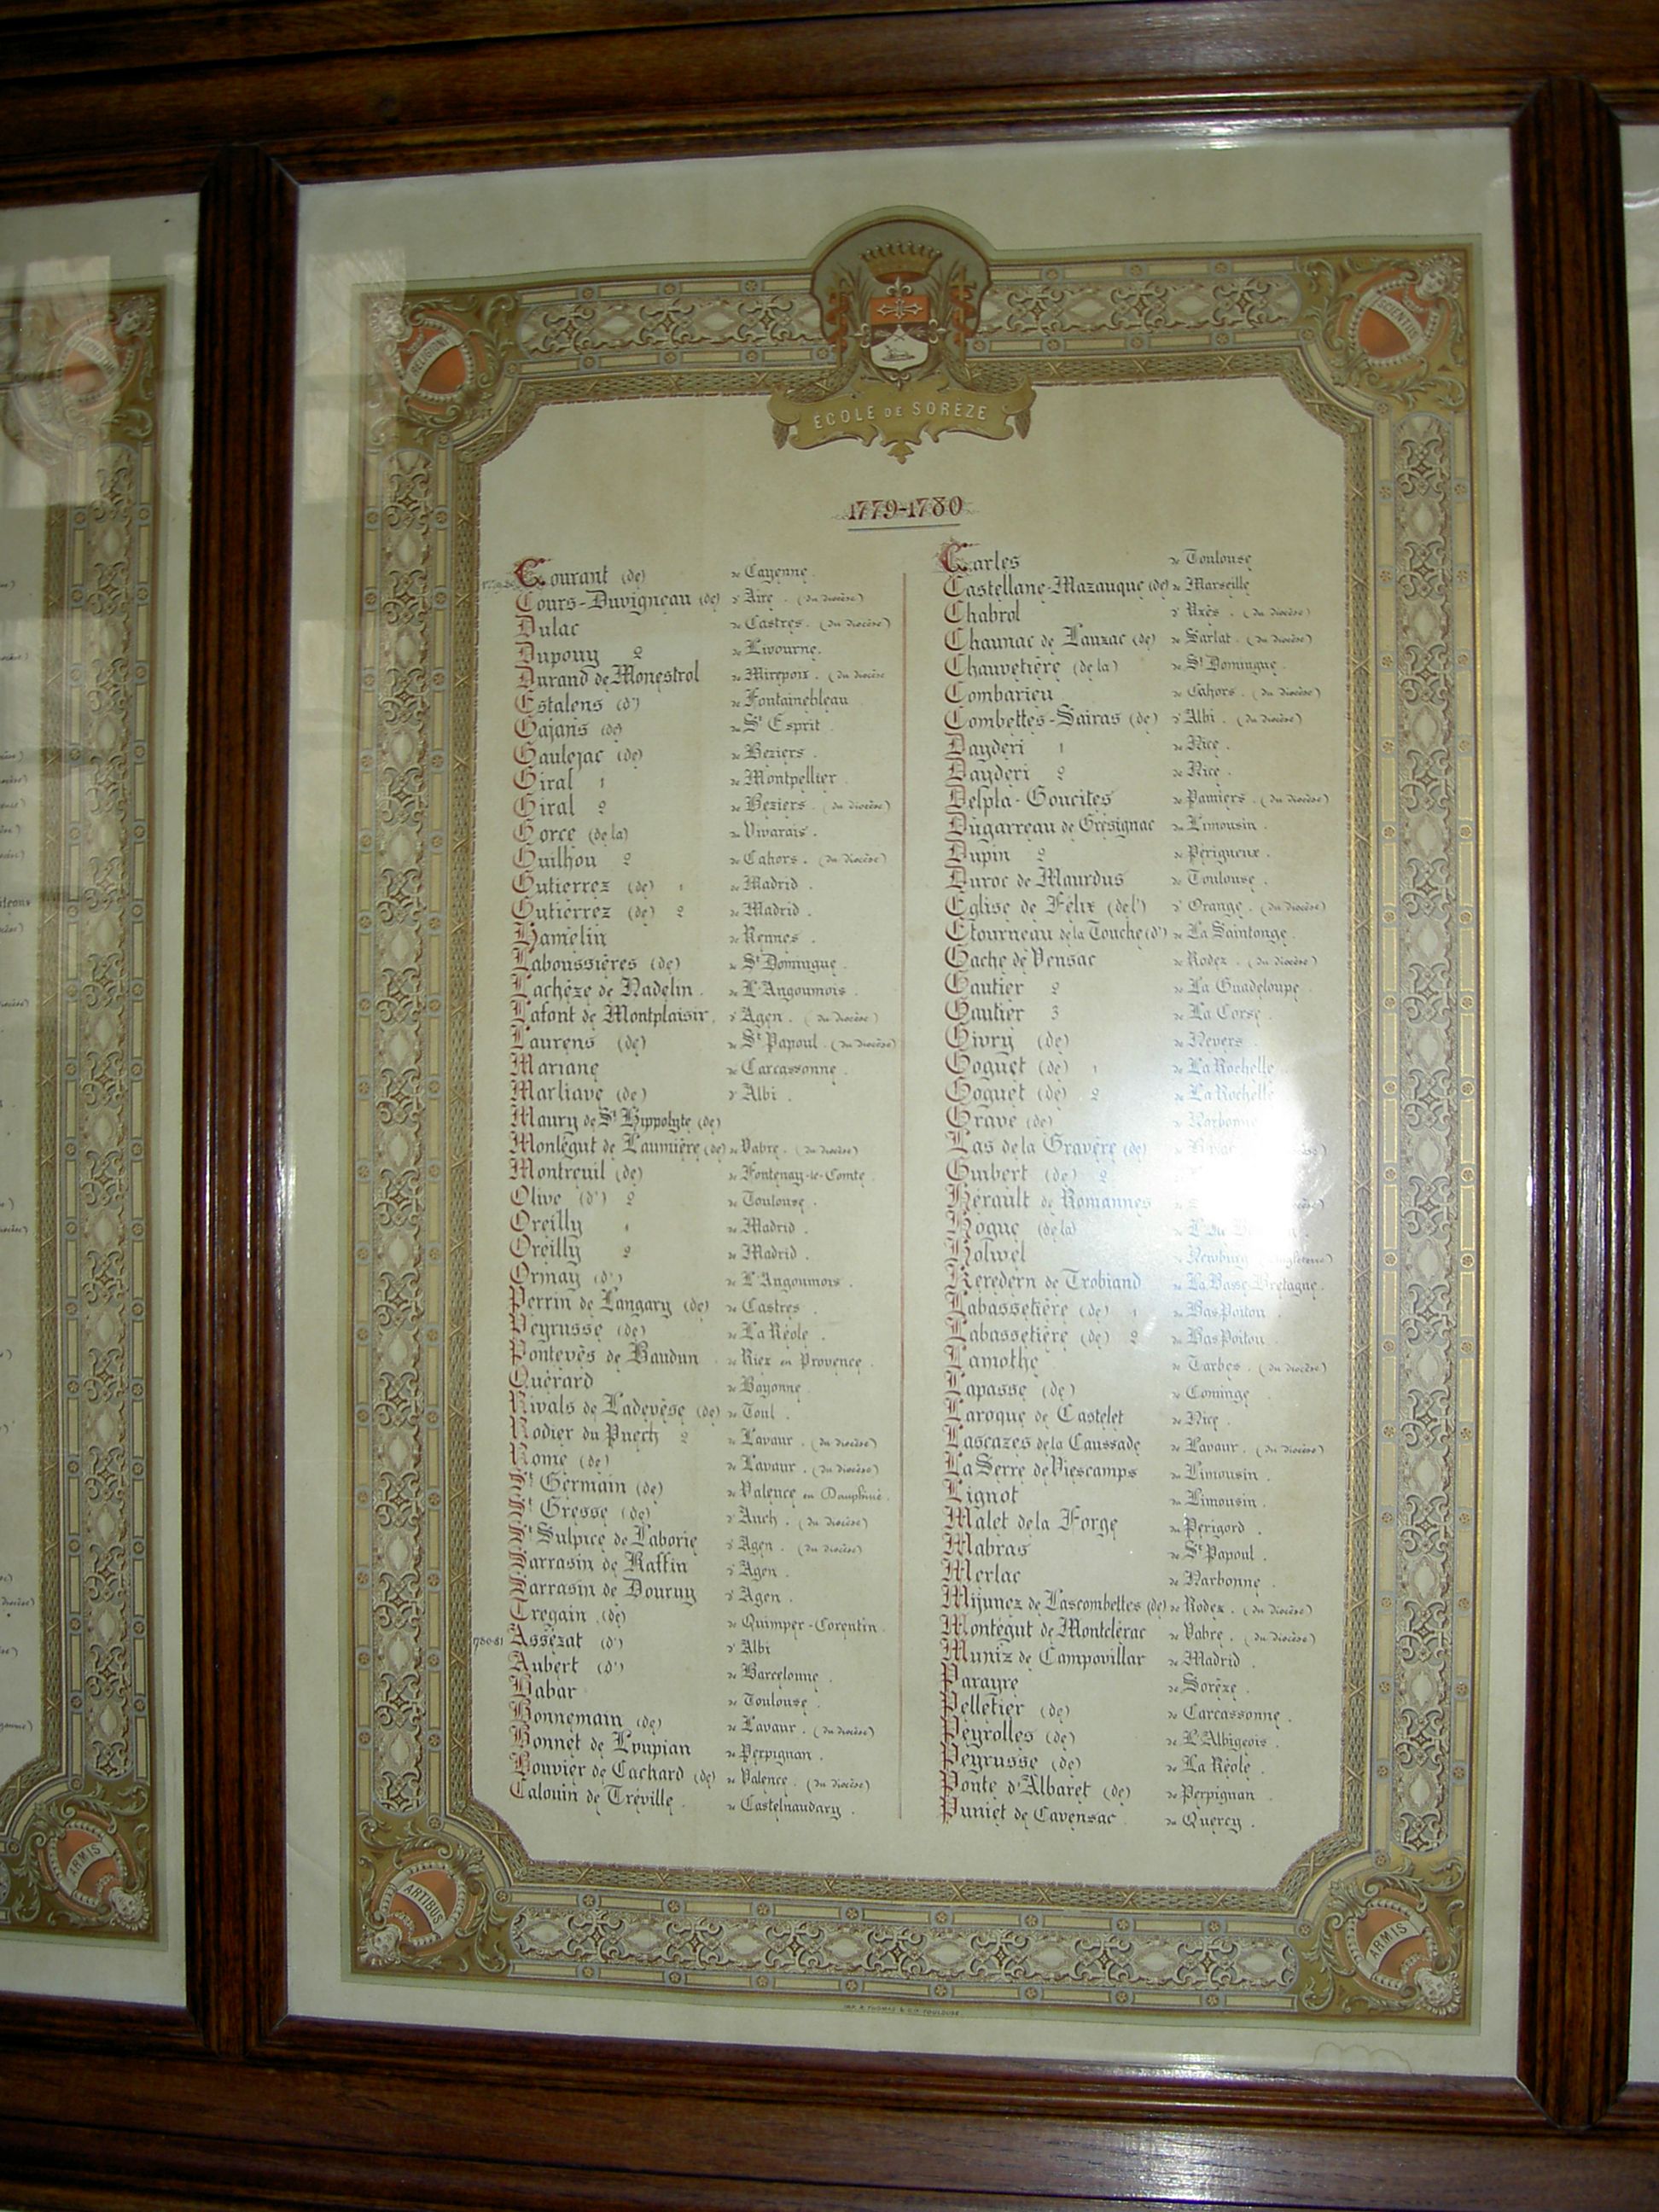 RELIGIONI
SCIENTIIS
ÉCOLE DE SORÈZE
1779-1780
Courant (de) de Cayenne.
Cours-Duvigneau (de) d'Aire. (du diocèse)
Dulac de Castres. (du diocèse)
Dupouy 2 de Livourne.
Durand de Monestrol de Mirepoix. (du diocèse
Estalens (d') de Fontainebleau
Gajans (de) de St Esprit.
Gaulejac (de) de Béziers.
Giral 1 de Montpellier.
Giral 2 de Béziers. (du diocèse)
Gorce (de la) du Vivarais.
Guilhou 2 de Cahors. (du diocèse)
Gutierrez (de) 1 de Madrid.
Gutierrez (de) 2 de Madrid.
Hamelin de Rennes.
Laboussières (de) de St Domingue.
Lachèze de Nadelin. de L'Angoumois.
Lafont de Montplaisir. d'Agen. (du diocèse)
Laurens (de) de St Papoul. (du diocèse)
Mariane de Carcassonne.
Marliave (de) d'Albi.
Maury de St Hippolyte (de)
Montégut de Laumière (de) de Vabre. (du diocèse)
Montreuil (de) de Fontenay-le-Comte.
Olive (d') 2 de Toulouse.
Oreilly 1 de Madrid.
Oreilly 2 de Madrid.
Ormay (d') de L'Angoumois.
Perrin de Langary (de) de Castres.
Peyrusse (de) de La Réole.
Pontevès de Baudun. de Riez en Provence.
Quérard de Bayonne
Rivals de Ladevèse (de) de Toul.
Rodier du Puech 2 de Lavaur. (du diocèse)
Rome (de) de Lavaur. (du diocèse)
St Germain (de) de Valence en Dauphiné.
St Gresse (de) d'Auch. (du diocèse)
St Sulpice de Laborie d'Agen. (du diocèse)
Sarrasin de Raffin d'Agen.
Sarrasin de Douruy d'Agen.
Tregain (de) de Quimper-Corentin.
1780-81 Assézat (d') d'Albi
Aubert (d') de Barcelonne.
Babar de Toulouse.
Bonnemain (de) de Lavaur. (du diocèse)
Bonnet de Loupian de Perpignan.
Bouvier de Cachard (de) de Valence. (du diocèse)
Calouin de Tréville. de Castelnaudary.
Carles de Toulouse
Castellane-Mazauque (de) de Marseille
Chabrol d'Uzès. (du diocèse)
Chaunac de Lanzac (de) de Sarlat. (du diocèse)
Chauvetière (de la) de St Domingue.
Combarieu de Cahors. (du diocèse)
Combettes-Sairas (de) d'Albi. (du diocèse)
Dayderi 1 de Nice.
Dayderi 2 de Nice.
Delpla-Goucites de Pamiers. (du diocèse)
Dugarreau de Gresignac du Limousin.
Dupin 2 de Périgueux.
Duroc de Maurdus de Toulouse.
Eglise de Félix (de l') d'Orange. (du diocèse)
Etourneau de la Touche (d') de La Saintonge.
Gache de Vensac de Rodez. (du diocèse)
Gautier 2 de La Guadeloupe.
Gautier 3 de La Corse.
Givry (de) de Nevers.
Goguet (de) 1 de La Rochelle.
Goguet (de) 2 de La Rochelle
Grave (de) de Narbonne
Las de la Gravère (de)
Guibert (de) 2
Hérault de Romannes
Hogue (de la)
Holwel de Newburg
Keredern de Trobiand de La Basse-Bretagne.
Labassetière (de) 1 du Bas Poitou.
Labassetière (de) 2 du Bas Poitou.
Lamothe de Tarbes. (du diocèse)
Lapasse (de) de Cominge
Laroque de Castelet de Nice.
Lascazes de la Caussade de Lavaur. (du diocèse)
La Serre de Viescamps du Limousin.
Lignot du Limousin.
Malet de la Forge du Périgord.
Mabras de St Papoul.
Merlac de Narbonne.
Mijunez de Lascombelles (de) de Rodez. (du diocèse)
Montégut de Montclérac de Vabre. (du diocèse)
Muniz de Campovillar de Madrid.
Parayre de Sorèze.
Pelletier (de) de Carcassonne.
Peyrolles (de) de L'Albigeois.
Peyrusse (de) de La Réole.
Ponte d'Albaret (de) de Perpignan.
Puniet de Cavensac de Quercy.
ARTIBUS
ARMIS
ARMIS